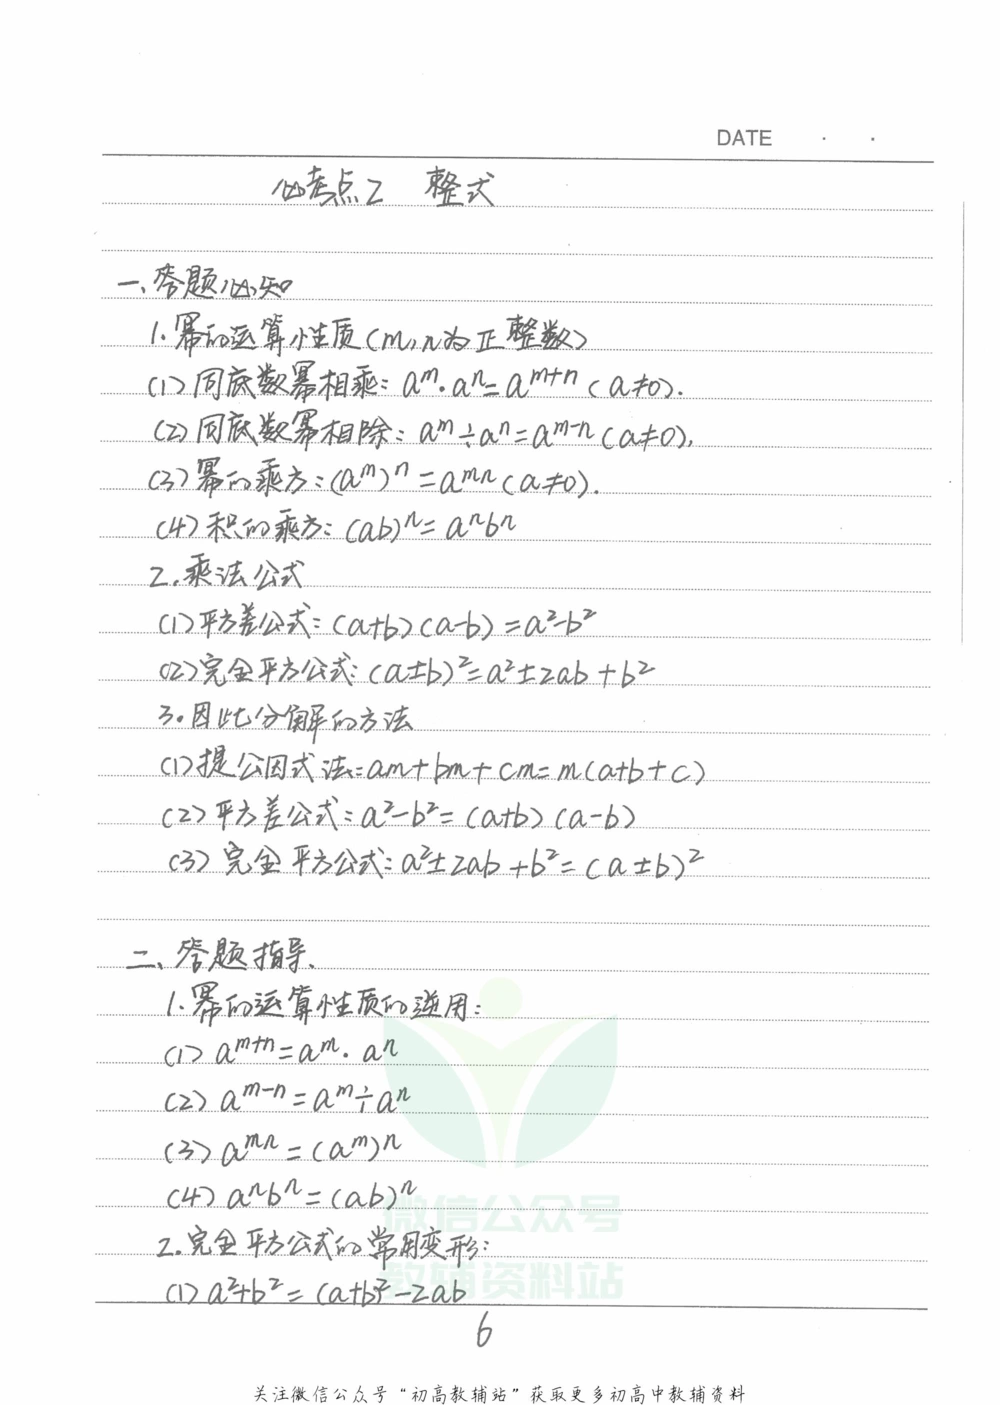 DATE · ·
必考点2 整式
一、答题必知
1.幂的运算性质(m,n为正整数)
(1)同底数幂相乘:aᵐ·aⁿ=aᵐ⁺ⁿ(a≠0).
(2)同底数幂相除:aᵐ÷aⁿ=aᵐ⁻ⁿ(a≠0),
(3)幂的乘方:(aᵐ)ⁿ=aᵐⁿ(a≠0).
(4)积的乘方:(ab)ⁿ=aⁿbⁿ
2.乘法公式
(1)平方差公式:(a+b)(a-b)=a²-b²
(2)完全平方公式:(a±b)²=a²±2ab+b²
3.因此分解的方法
(1)提公因式法:am+bm+cm=m(a+b+c)
(2)平方差公式:a²-b²=(a+b)(a-b)
(3)完全平方公式:a²±2ab+b²=(a±b)²
二、答题指导、
1.幂的运算性质的逆用:
(1)aᵐ⁺ⁿ=aᵐ·aⁿ
(2)aᵐ⁻ⁿ=aᵐ÷aⁿ
(3)aᵐⁿ=(aᵐ)ⁿ
(4)aⁿbⁿ=(ab)ⁿ
微信公众号
2.完全平方公式的常用变形:
教辅资料站
(1)a²+b²=(a+b)²-2ab
6
关注微信公众号“初高教辅站”获取更多初高中教辅资料